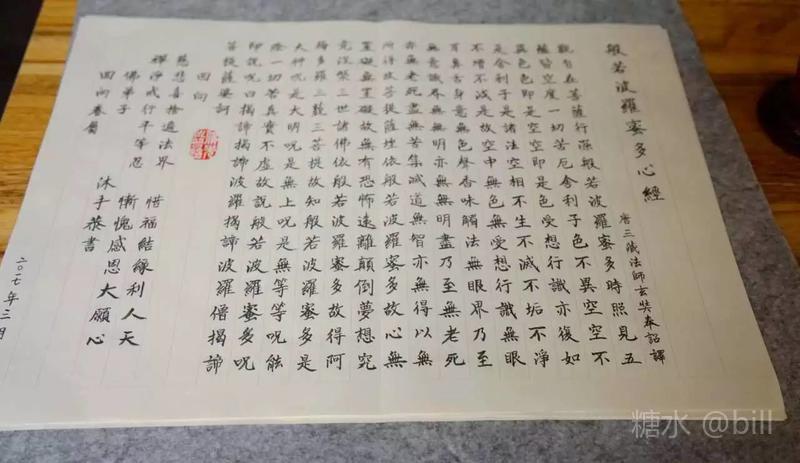 般若波羅蜜多心經
唐三藏法師玄奘奉詔譯
觀自在菩薩行深般若波羅蜜多時照見五
蘊皆空度一切苦厄舍利子色不異空空不
異色色即是空空即是色受想行識亦復如
是舍利子是諸法空相不生不滅不垢不淨
不增不減是故空中無色無受想行識無眼
耳鼻舌身意無色聲香味觸法無眼界乃至
無意識界無無明亦無無明盡乃至無老死
亦無老死盡無苦集滅道無智亦無得以無
所得故菩提薩埵依般若波羅蜜多故心無
罣礙無罣礙故無有恐怖遠離顛倒夢想究
竟涅槃三世諸佛依般若波羅蜜多故得阿
耨多羅三藐三菩提故知般若波羅蜜多是
大神呪是大明呪是無上呪是無等呪能
除一切苦真實不虛故說般若波羅蜜多呪
即說呪曰揭諦揭諦波羅揭諦波羅僧揭諦
菩提薩婆訶
回向
慈悲喜捨遍法界 惜福結緣利人天
禪淨戒行平等忍 慚愧感恩大願心
佛弟子 沐手恭書
回向眷屬
二〇一七年三月
糖水 @bill